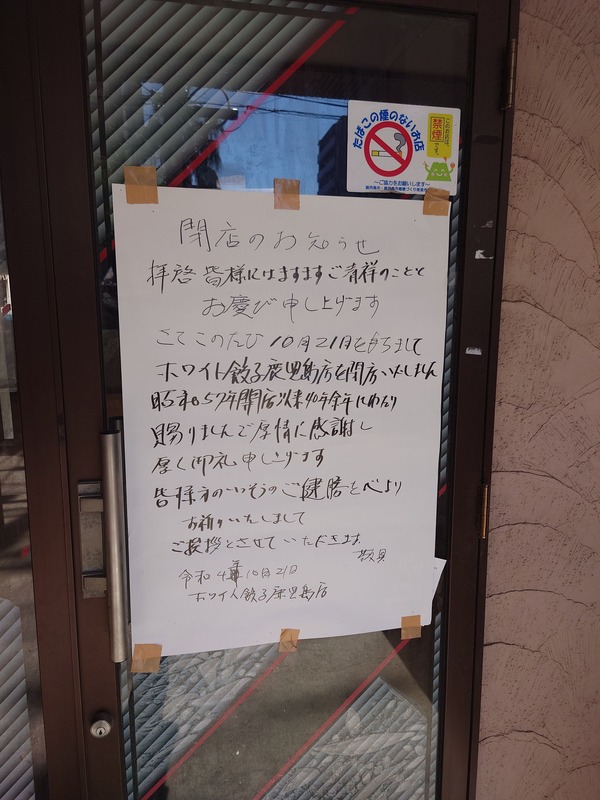 たばこの煙のないお店
このお店は、
禁煙
です。
～ご協力をお願いします～
閉店のお知らせ
拝啓 皆様にはますますご清祥のことと
お慶び申し上げます
さてこのたび10月21日を持ちまして
ホワイト餃子鹿児島店を閉店いたしました
昭和57年開店以来40年余年にわたり
賜りましたご厚情に感謝し
厚く御礼申し上げます
皆様方のいっそうのご健勝を心より
お祈りいたしまして
ご挨拶とさせていただきます。
敬具
令和4年10月21日
ホワイト餃子鹿児島店